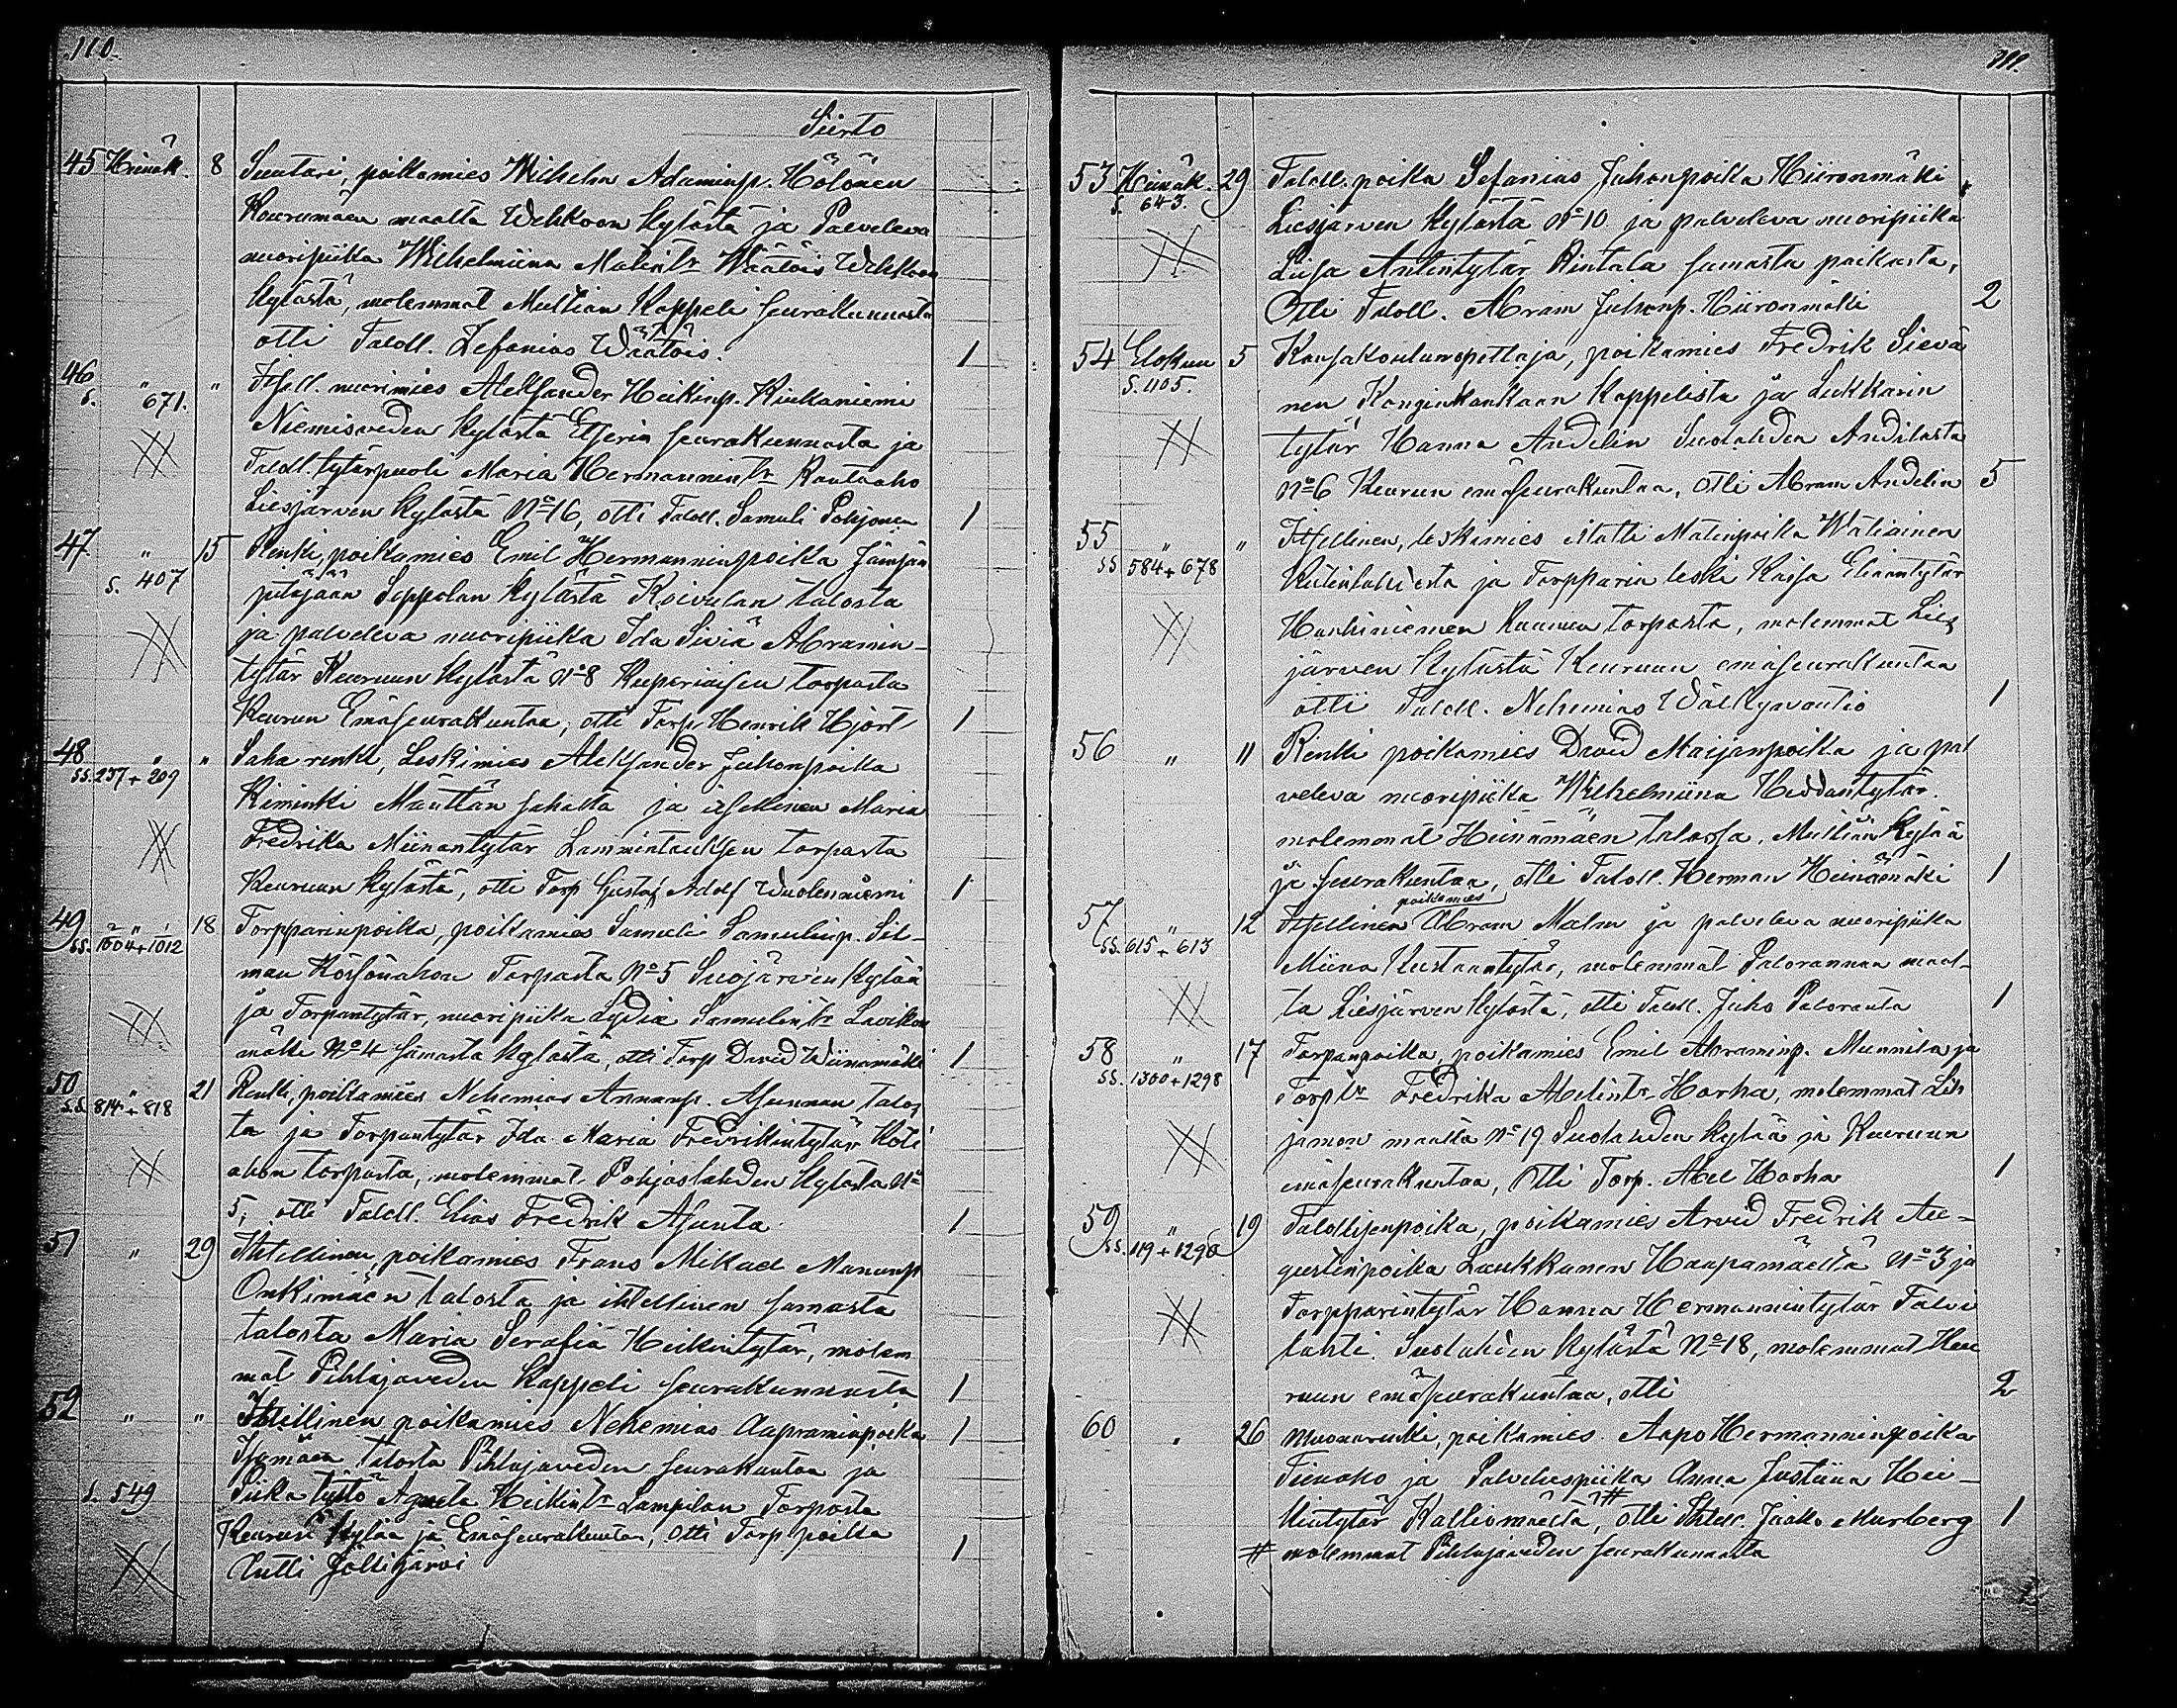 110.
Siirto
45 Heinäk. 8 Suutari, poikamies Wilhelm Adaminp. Hölönen
Kourumäen maalta Wehkoon kylästä ja Palveleva
nuoripiika Wilhelmiina Matintr Wäätäis Wehkoon
kylästä, molemmat Multian Kappeli seurakunnasta
otti Taloll. Sefanias Wäätäis. 1
46 " " Itsell. nuorimies Aleksander Heikinp. Kiukaniemi
s. 671.
Niemisveden kylästä Etserin seurakunnasta ja
Taloll. tytärpuoli Maria Hermannintr Rautaaho
Liesjärven kylästä No 16, otti Taloll. Samuli Pohjonen 1
47 " 15 Renki, poikamies Emil Hermanninpoika Jämsän
s. 407
pitäjään Seppolan kylästä Koivulan talosta
ja palveleva nuoripiika Ida Siviä Abramin-
tytär Keuruun kylästä No 8 Kuperiaisen torpasta
Keurun Emäseurakuntaa, otti Torp. Henrik Hjört 1
48 " " Saha renki, Leskimies Aleksander Juhonpoika
ss. 257 + 209
Kiminki Mänttän sahalta ja itsellinen Maria
Fredrika Miinantytär Lammintauksen torpasta
Keuruun kylästä, otti Torp Gustaf Adolf Wuolenniemi 1
49 " 18 Torpparinpoika, poikamies Samuli Samulinp. Sil-
ss. 1004 + 1012
man Kössönahon Torpasta No 5 Suojärven kylää
ja Torpantytär, nuoripiika Lydia Samulintr Lavikon
mäki No 4 samasta kylästä, otti Torp David Wiinamäki 1
50 " 21 Renki, poikamies Nehemias Annanp. Asunnan talos
s.s. 814 + 818
ta ja Torpantytär Ida Maria Fredrikintytär Koti
ahon torpasta, molemmat Pohjaslahden kylästä No
5, otti Taloll. Elias Fredrik Asunta 1
51 " 29 Ittellinen, poikamies Frans Mikael Manunp
Onkimäen talosta ja ittellinen samasta
talosta Maria Serafia Heikintytär, molem
mat Pihlajaveden Kappeli seurakunnasta 1
52 " " Ittellinen poikamies Nehemias Aapraminpoika 1
Isomäen talosta Pihlajaveden seurakuntaa ja
s. 549 Piika tyttö Agneta Heikintr Lampilan Torpasta
Keurun kylää ja Emäseurakuntaa, otti Torp. poika
Antti Jällijärvi 1
111.
53 Heinäk. 29 Taloll. poika Sefanias Juhonpoika Hiironmäki
s. 643.
Liesjärven kylästä No 10 ja palveleva nuoripiika
Liisa Antintytär Rintala samasta paikasta,
Otti Taloll. Abram Juhonp. Hiironmäki 2
54 Elokuu 5 Kansakoulunopettaja, poikamies Fredrik Sievä
S. 1105
nen Konginkankaan Kappelista ja Lukkarin
tytär Hanna Andelin Suolahden Andilasta
No 6 Keurun emäseurakuntaa, otti Abram Andelin 5
55 " " Itsellinen, leskimies Matti Matinpoika Wäliainen
ss 584 + 678
ja Torpparin leski Kaisa Eliaantytär
Hankiniemen Kuusen torpasta, molemmat Lies
järven kylästä Keuruun emäseurakuntaa
otti Taloll. Nehemias Wälkyvuotio 1
56 " 11 Renki poikamies David Maijanpoika ja pal
veleva nuoripiika Wilhelmiina Heddantytär.
molemmat Heinämäen talossa, Multian kylää
ja seurakuntaa, otti Taloll. Herman Heinäemäki 1
57 " 12 Itsellinen poikamies Abram Malm ja palveleva nuoripiika
ss. 615 + 613
Miina Kustaantytär, molemmat Palorannan maal-
ta Liesjärven kylästä, otti Taloll. Juho Paloranta 1
58 " 17 Torpanpoika, poikamies Emil Abraminp. Munnila ja
ss. 1300 + 1298
Torptr Fredrika Abelintr Harha, molemmat Lih
jamon maalta No 19 Suolahden kylää ja Keuruun
emäseurakuntaa, Otti Torp. Abel Harha 1
59 " 19 Talollisenpoika, poikamies Arvid Fredrik Au-
ss. 119 + 1290
gustinpoika Laukkanen Haapamäeltä No 3 ja
Torpparintytär Hanna Hermannintytär Talvi
lahti. Suolahden kylästä No 18, molemmat Keu
ruun emäseurakuntaa, otti 2
60 " 26 Muonarenki, poikamies Aapo Hermanninpoika
Tienaho ja Palveluspiika Anna Justiina Hei-
kintytär Kalliomäeltä, # otti Ittell. Jaako Murberg 1
# molemmat Pihlajaveden seurakunnasta